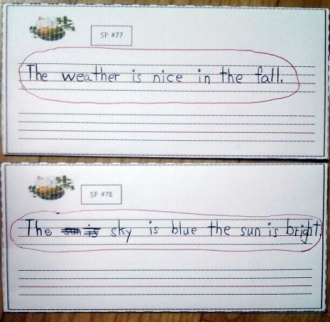 SP #77
The weather is nice in the fall.
SP #78
The sun is sky is blue the sun is bright.